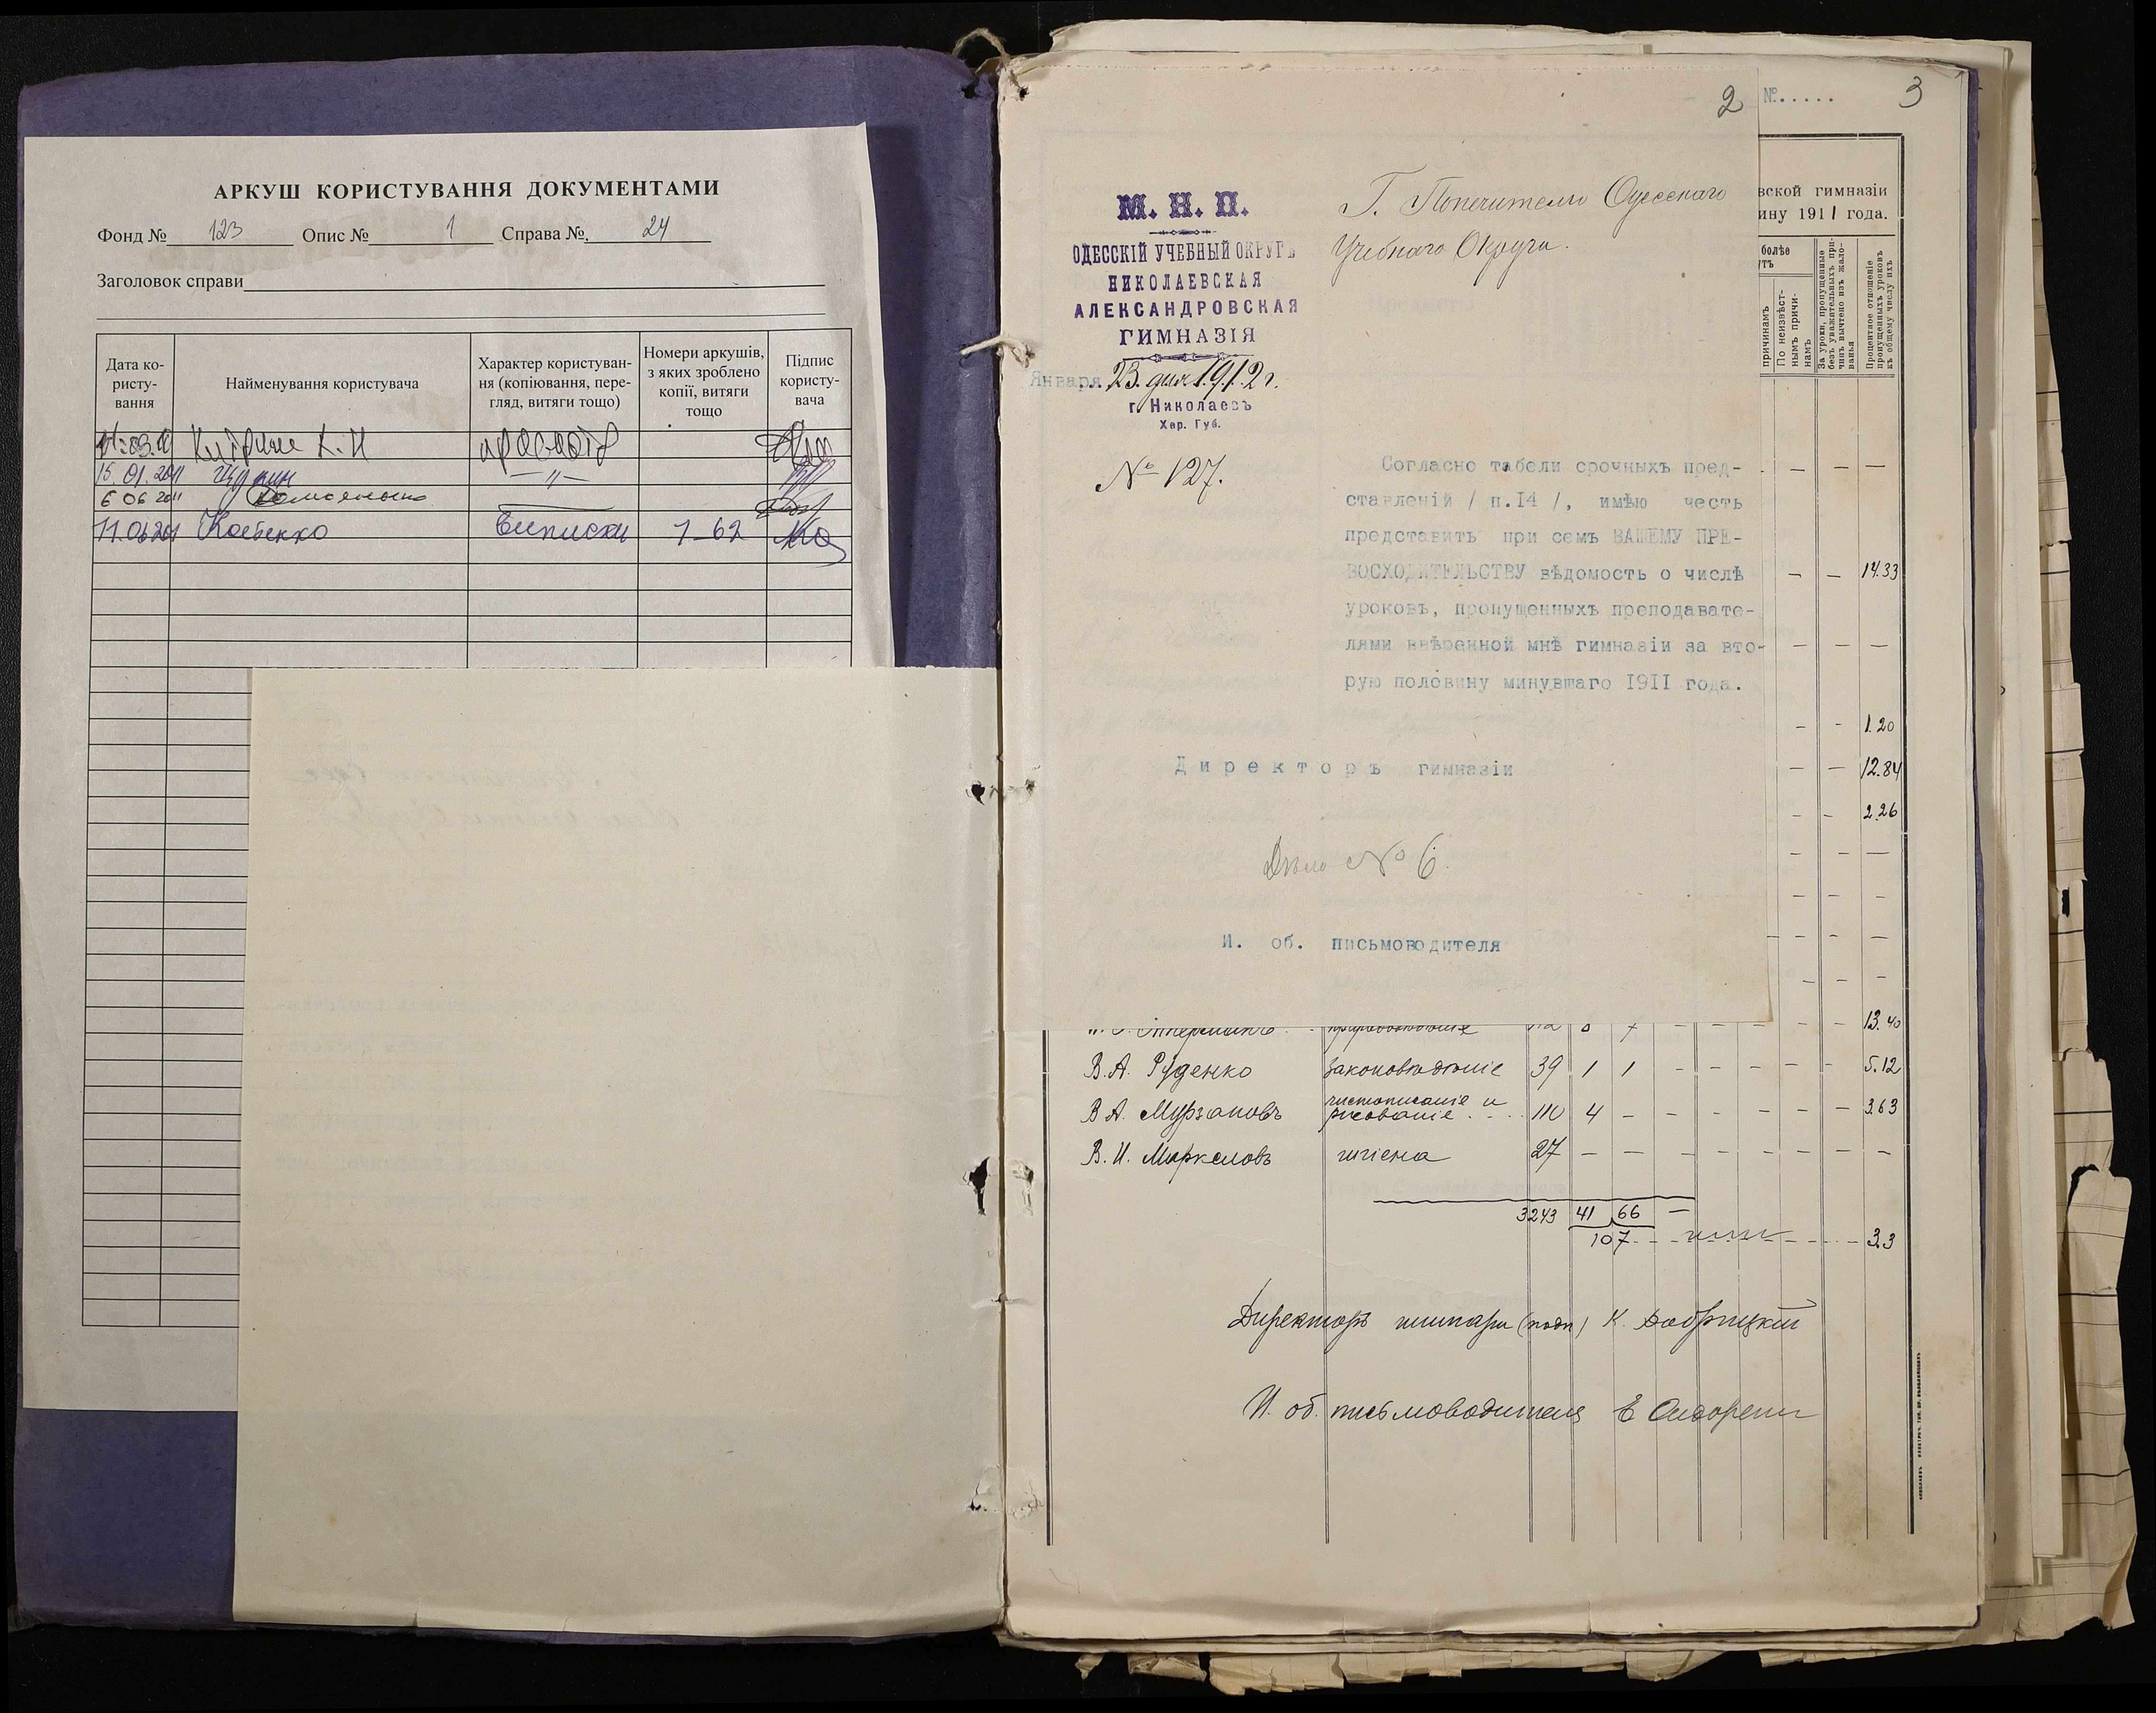 АРКУШ КОРИСТУВАННЯ ДОКУМЕНТАМИ
Фонд № 123 Опис № 1 Справа № 24
Заголовок справи
Дата ко-
ристу-
вання
Найменування користувача
Характер користуван-
ня (копіювання, пере-
гляд, витяги тощо)
Номери аркушів,
з яких зроблено
копії, витяги
тощо
Підпис
користу-
вача
К. И
15.01.2011 —"—
6 06 2011
11.06.201 Виписки 1-62
2
М. Н. П.
ОДЕССКІЙ УЧЕБНЫЙ ОКРУГЪ
НИКОЛАЕВСКАЯ
АЛЕКСАНДРОВСКАЯ
ГИМНАЗІЯ
Января 23 дня 1912 г.
г. Николаевъ
Хер. Губ.
№ 127.
Г. Попечителю Одесскаго
Учебнаго Округа.
Согласно табели срочныхъ пред-
ставленій / п.I4 /, имѣю честь
представить при семъ ВАШЕМУ ПРЕ-
ВОСХОДИТЕЛЬСТВУ вѣдомость о числѣ
уроковъ, пропущенныхъ преподавате-
лями ввѣренной мнѣ гимназіи за вто-
рую половину минувшаго I9II года.
Директоръ гимназіи
Дѣло № 6.
И. об. письмоводителя
№..... 3
вской гимназіи
ину 1911 года.
болѣе
утъ
причинамъ
По неизвѣст-
нымъ причи-
намъ
За уроки, пропущенные
безъ уважительныхъ при-
чинъ вычтено изъ жало-
ванья
Процентное отношеніе
пропущенныхъ уроковъ
къ общему числу ихъ
— — —
— — 14.33
— — —
— — 1.20
— — 12.84
— — 2.26
— — —
— — —
— — —
— — —
— — 13.40
В.А. Руденко законовѣдѣніе 39 1 1 — — — — — 5.12
В.А. Мурзановъ чистописаніе и
рисованіе 110 4 — — — — — — 3.63
В.И. Маркеловъ гигіена 27 — — — — — — — —
3243 41 66 —
107 3.3
Директоръ (подп) К.
И. об. письмоводителя Е